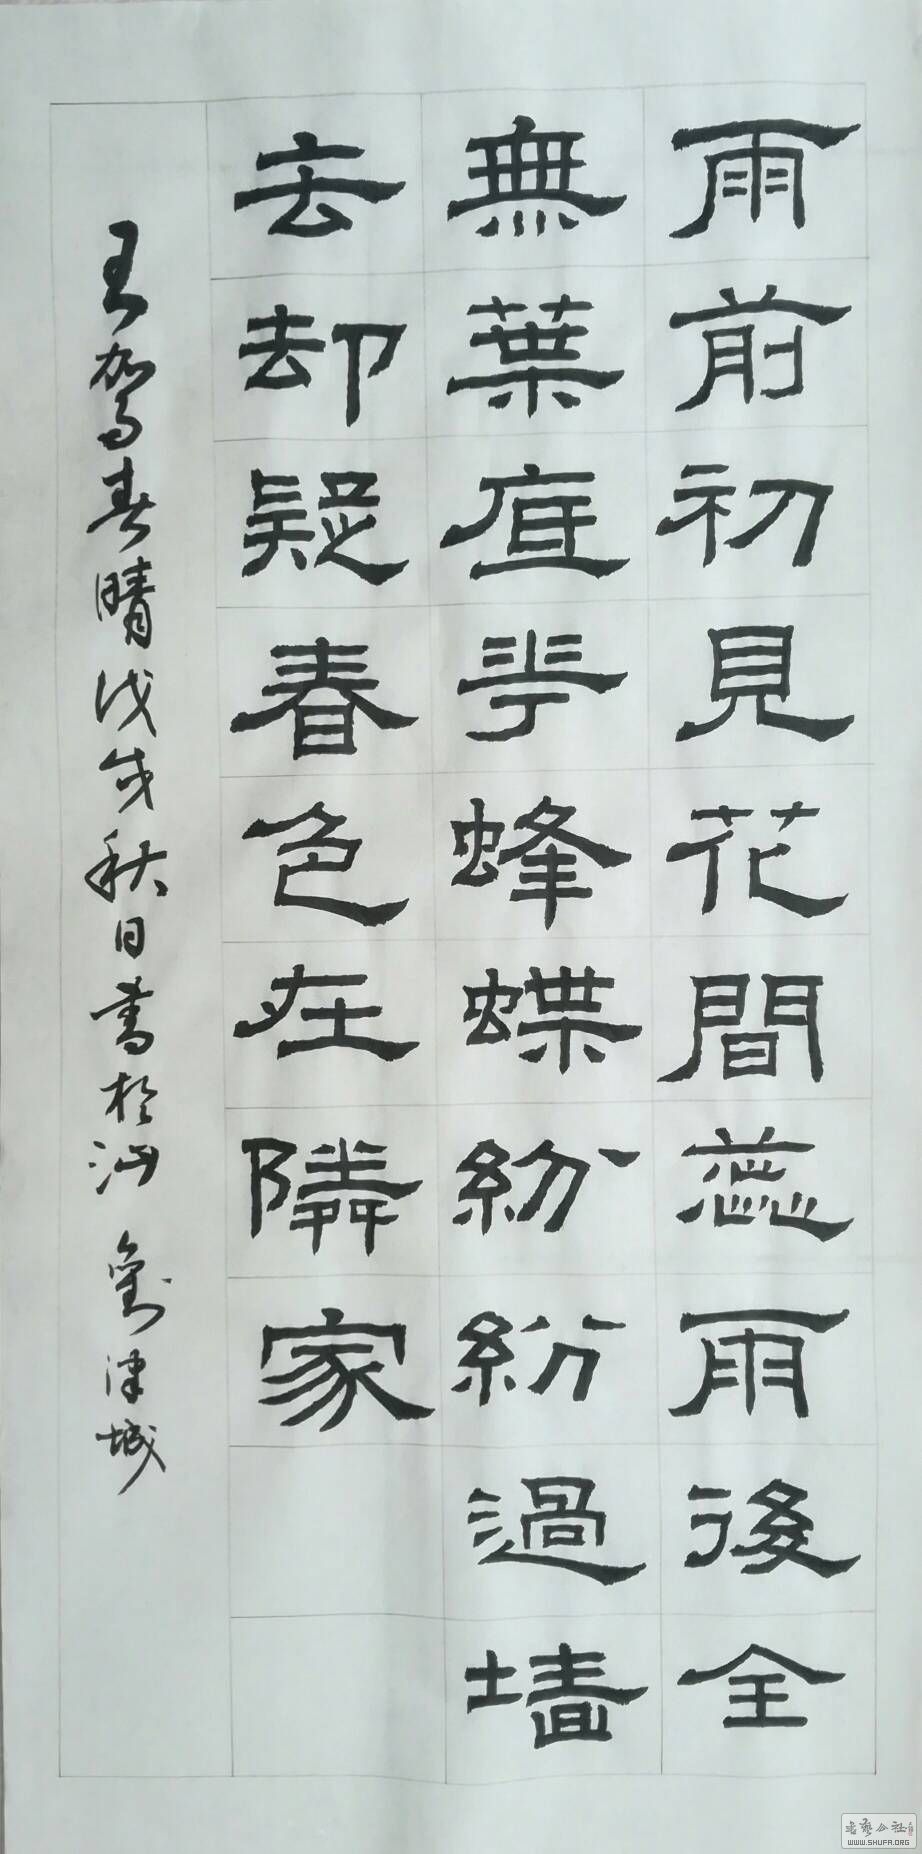 雨前初見花間蕊雨後全
無葉底花蜂蝶紛紛過墻
去却疑春色在隣家
王駕春晴戊戌秋日書於泗劉津城
书艺公社
WWW.SHUFA.ORG